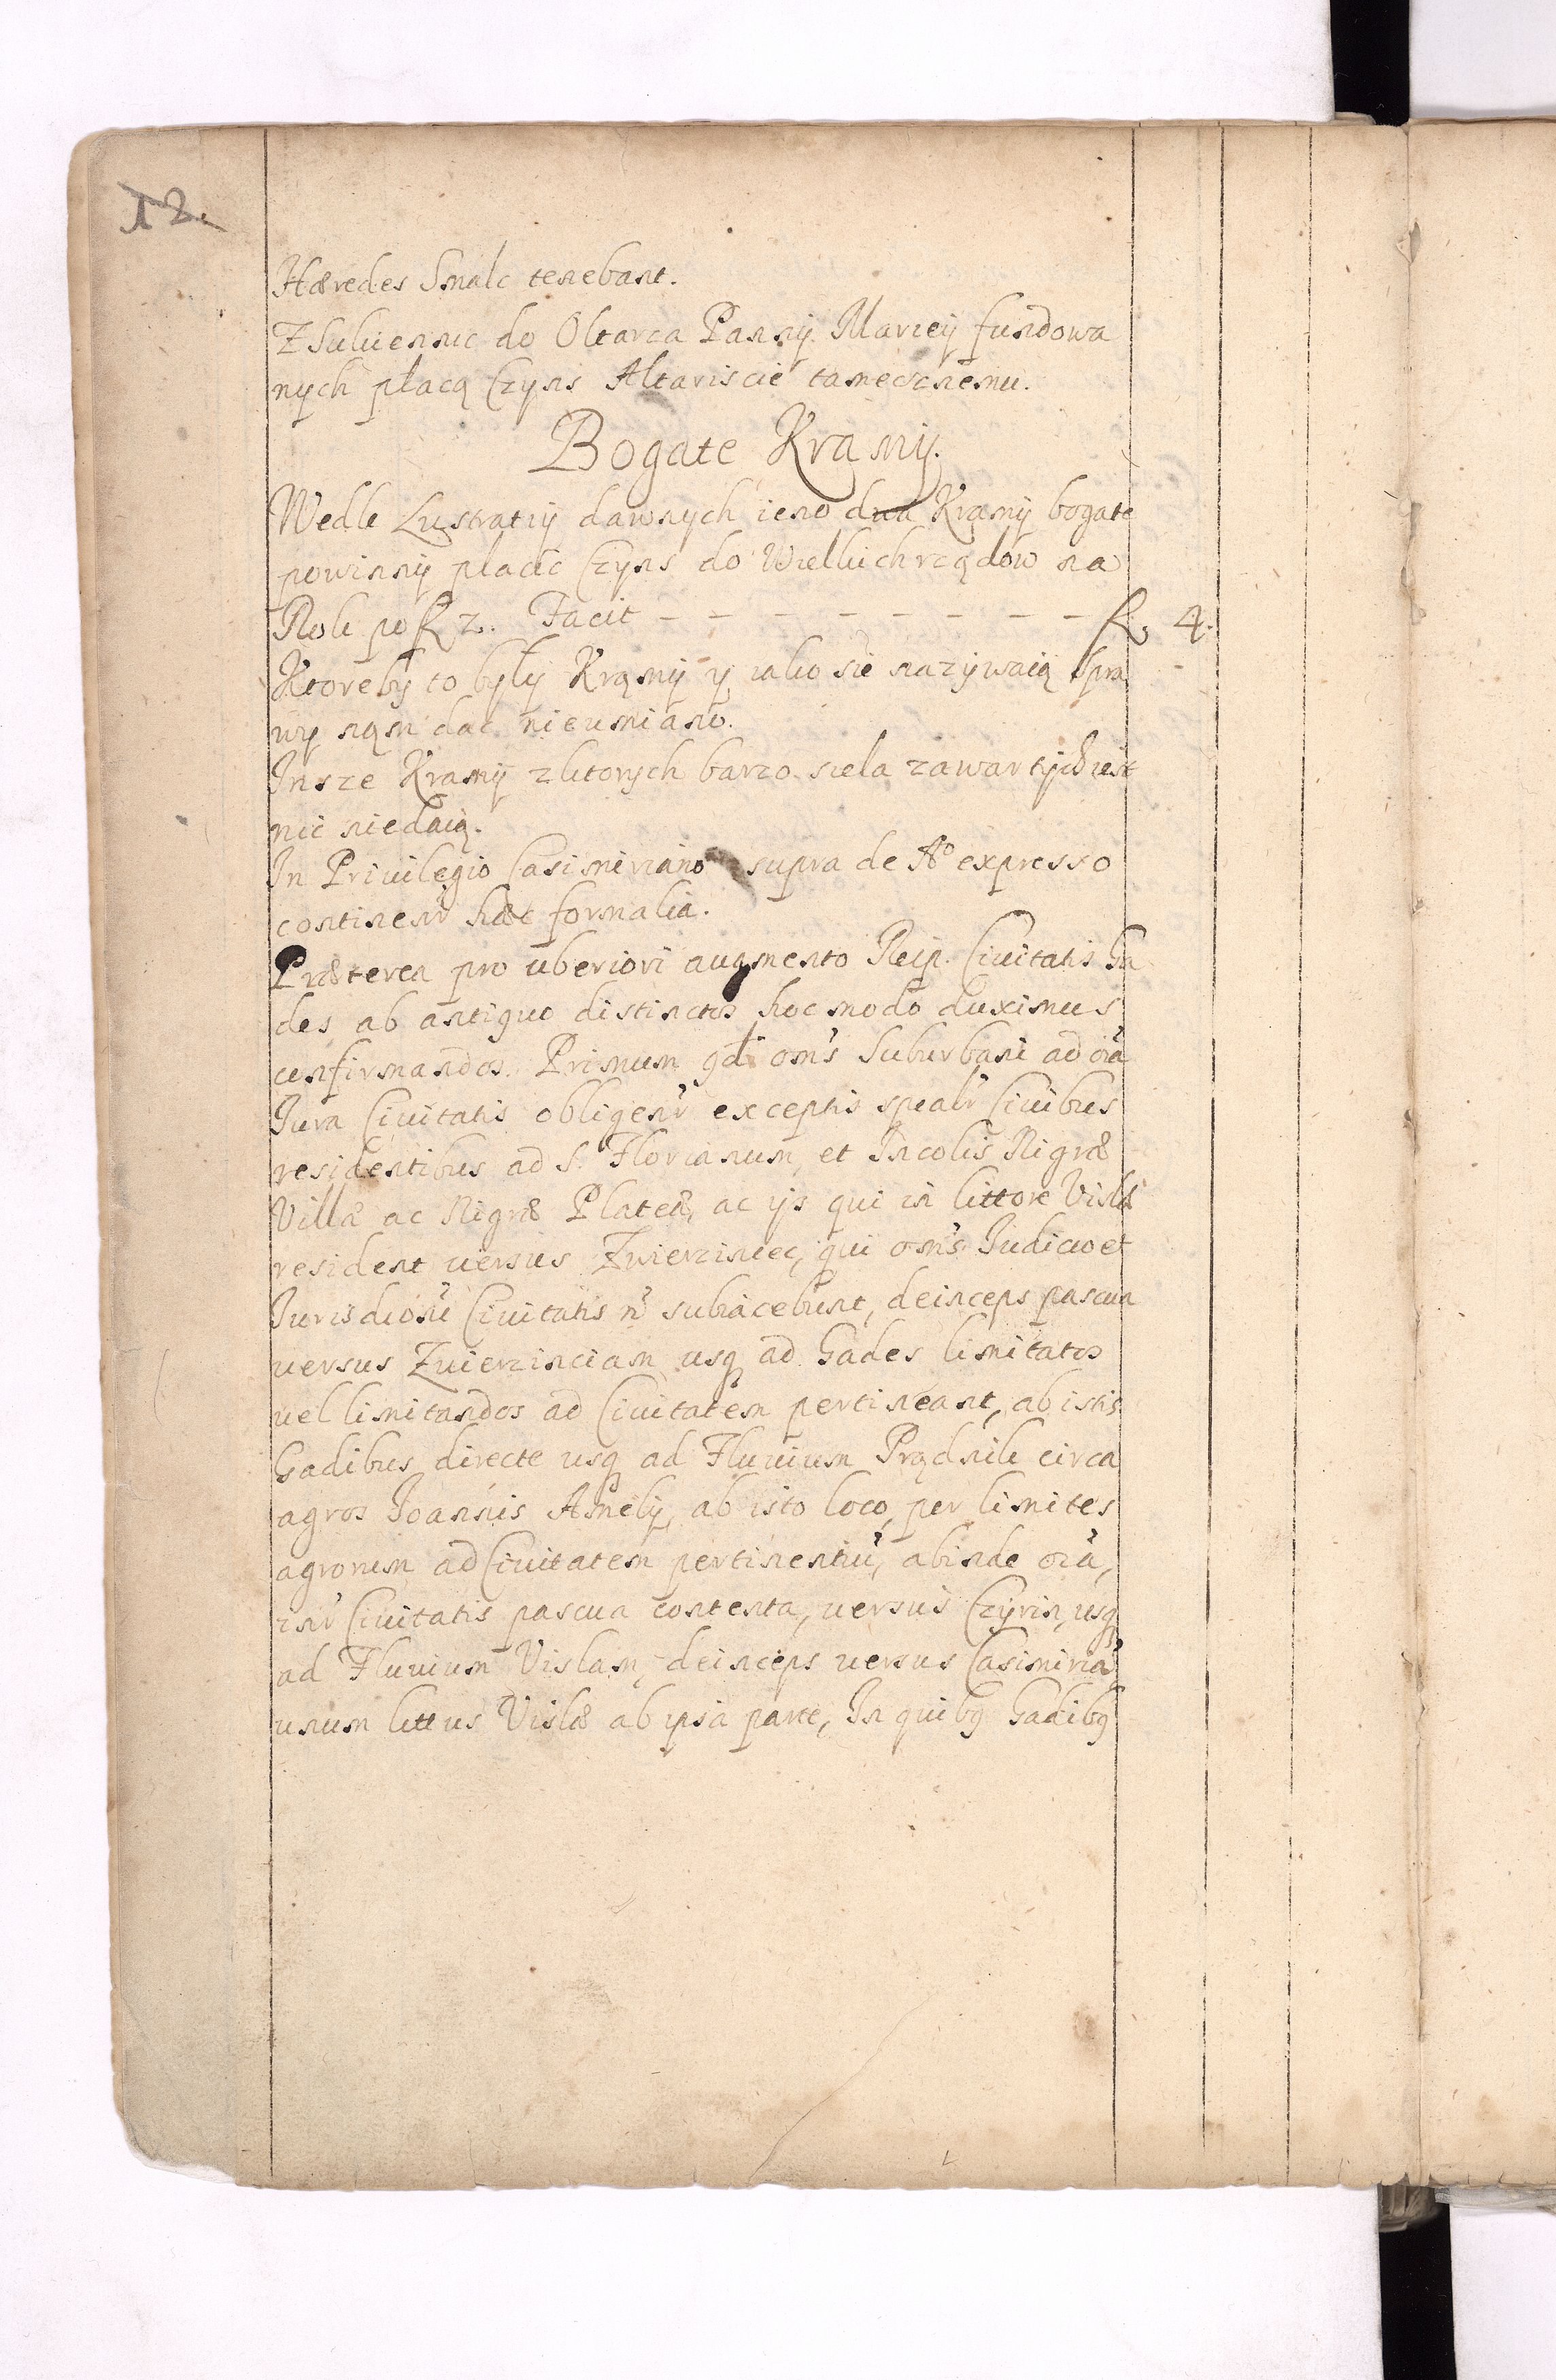 12.
Hæredes Smalc tenebant.
Z Sukiennic do Oltarza Panny Mariey fundowa
nych płacą Czyns Altariscie tamecznemu.
Bogate Kramy.
Wedle Lustratiy dawnych ieno dwa Kramy bogate
powinny płacic Czyns do Wielkichrządow na
Rok po fl 2. Facit - - - - - - - fl. 4.
Ktoreby to były Kramy y iako sie nazywaią spra
wy nąm dac nieumiano.
Insze Kramy z ktorych barzo siela zawartych iest
nic niedaią.
In Privilegio Casimiriano supra de Aº expresso
continenr hæc formalia.
Præterea pro uberiori augmento Reip. Civitatis Ga
des ab antiquo distinctos hoc modo duximus
confirmandos. Primum qd oms Suburbani ad oia
Iura Civitatis obligenr exceptis spealr Civibus
residentibus ad S. Florianum, et Incolis Nigræ
Villæ ac Nigræ Plateæ, ac ijs qui in littore Vislæ
resident versus Zwierziniec, qui oms Iudicio et
Iurisdioni Civitatis n subiacebunt, deinceps pascua
versus Zwierzinciam usq ad Gades limitatos
vel limitandos ad Civitatem pertineant, ab istis
Gadibus directe usq ad Fluvium Prądnik circa
agros Joannis Amelij, ab isto loco per limites
agrorum ad Civitatem pertinentiu, abinde oia,
Civitatis pascua contenta, versus Czyrin, usq
ad Fluvium Vislam, deinceps versus Casimiria
unum littus Vislæ ab ipsa parte, In quibq Gadibq